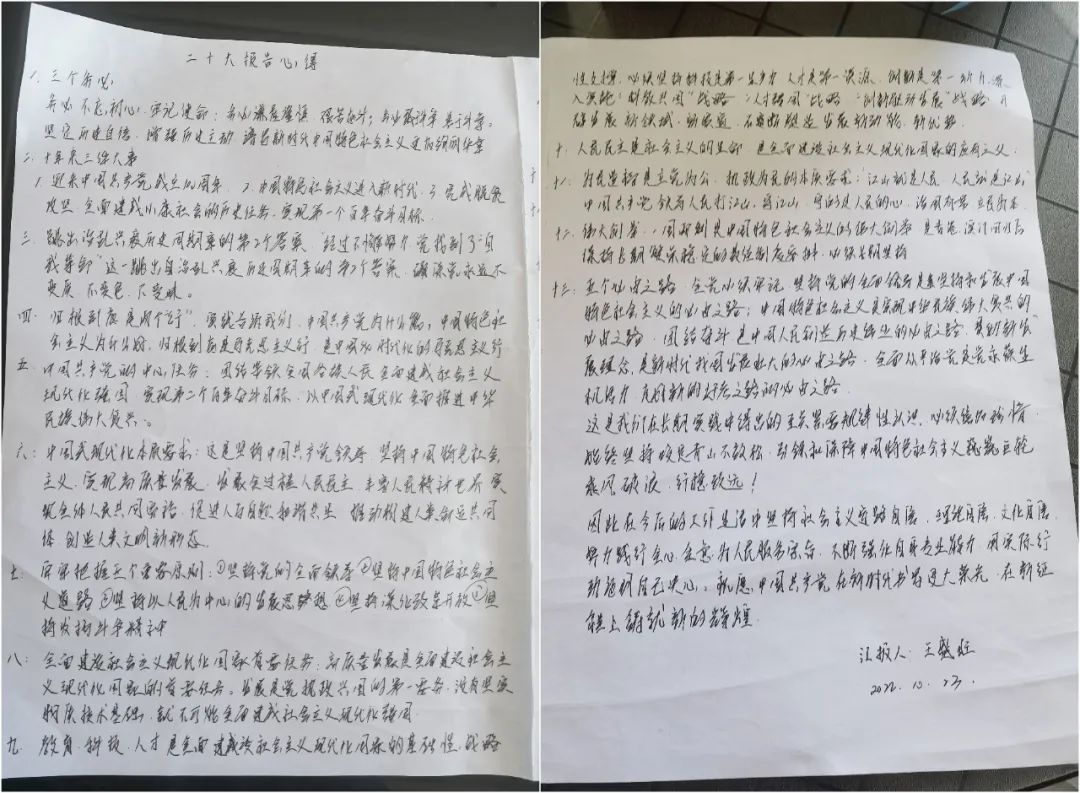 二十大报告心得
1. 三个务必:
务必不忘初心、牢记使命;务必谦虚谨慎、艰苦奋斗;务必敢于斗争、善于斗争。
坚定历史自信,增强历史主动,谱写新时代中国特色社会主义更加绚丽华章
二、十年来三件大事
1. 迎来中国共产党成立100周年 2. 中国特色社会主义进入新时代 3. 完成脱贫
攻坚、全面建成小康社会的历史任务,实现第一个百年奋斗目标.
三、跳出治乱兴衰历史周期率的第2个答案,"经过不懈努力,党找到了"自
我革命"这一跳出治乱兴衰历史周期率的第2个答案,确保党永远不
变质、不变色、不变味。
四、归根到底是两个"行",实践告诉我们,中国共产党为什么能,中国特色社
会主义为什么好,归根到底是马克思主义行,是中国化时代化的马克思主义行
五、中国共产党的中心任务:团结带领全国各族人民全面建成社会主义
现代化强国、实现第二个百年奋斗目标,以中国式现代化全面推进中华
民族伟大复兴。
六、中国式现代化本质要求:这是坚持中国共产党领导,坚持中国特色社会
主义,实现高质量发展,发展全过程人民民主,丰富人民精神世界,实
现全体人民共同富裕,促进人与自然和谐共生,推动构建人类命运共同
体,创造人类文明新形态。
七、牢牢把握五个重要原则:①坚持党的全面领导②坚持中国特色社会主
义道路③坚持以人民为中心的发展思想④坚持深化改革开放⑤坚
持发扬斗争精神
八、全面建设社会主义现代化国家首要任务:高质量发展是全面建设社会主
义现代化国家的首要任务。发展是党执政兴国的第一要务,没有坚实
物质技术基础,就不可能全面建成社会主义现代化强国
九、教育、科技、人才是全面建设社会主义现代化国家的基础性、战略
性支撑,必须坚持科技是第一生产力、人才是第一资源、创新是第一动力,深
入实施"科教兴国"战略、"人才强国"战略、"创新驱动发展"战略,开
辟发展新领域、新赛道,不断塑造发展新动能、新优势.
十、人民民主是社会主义的生命,是全面建设社会主义现代化国家的应有之义.
十一、为民造福是立党为公、执政为民的本质要求:"江山就是人民,人民就是江山"
中国共产党领导人民打江山、守江山,守的是人民的心,治国有常,利民为本
十二、伟大创举:一国两制是中国特色社会主义的伟大创举,是香港、澳门回归后
保持长期繁荣稳定的最佳制度安排,必须长期坚持
十三、五个必由之路:全党必须牢记,坚持党的全面领导是坚持和发展中国
特色社会主义的必由之路;中国特色社会主义是实现中华民族伟大复兴的
必由之路,团结奋斗是中国人民创造历史伟业的必由之路,贯彻新发
展理念,是新时代我国发展壮大的必由之路,全面从严治党是党永葆生
机活力、走好新的赶考之路的必由之路.
这是我们在长期实践中得出的至关紧要规律性认识,必须倍加珍惜、
始终坚持,咬定青山不放松,引领和保障中国特色社会主义巍巍巨轮
乘风破浪、行稳致远!
因此在今后的工作生活中坚持社会主义道路自信、理论自信、文化自信,
努力践行全心全意为人民服务宗旨,不断强化自身专业能力,用实际行
动表明自己决心。祝愿中国共产党在新时代书写更大荣光,在新征
程上铸就新的辉煌.
汇报人:王
2022.10.23.